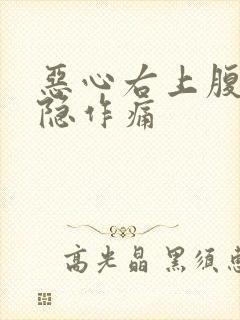 恶心右上腹
隐作痛
高光晶 黑须惠